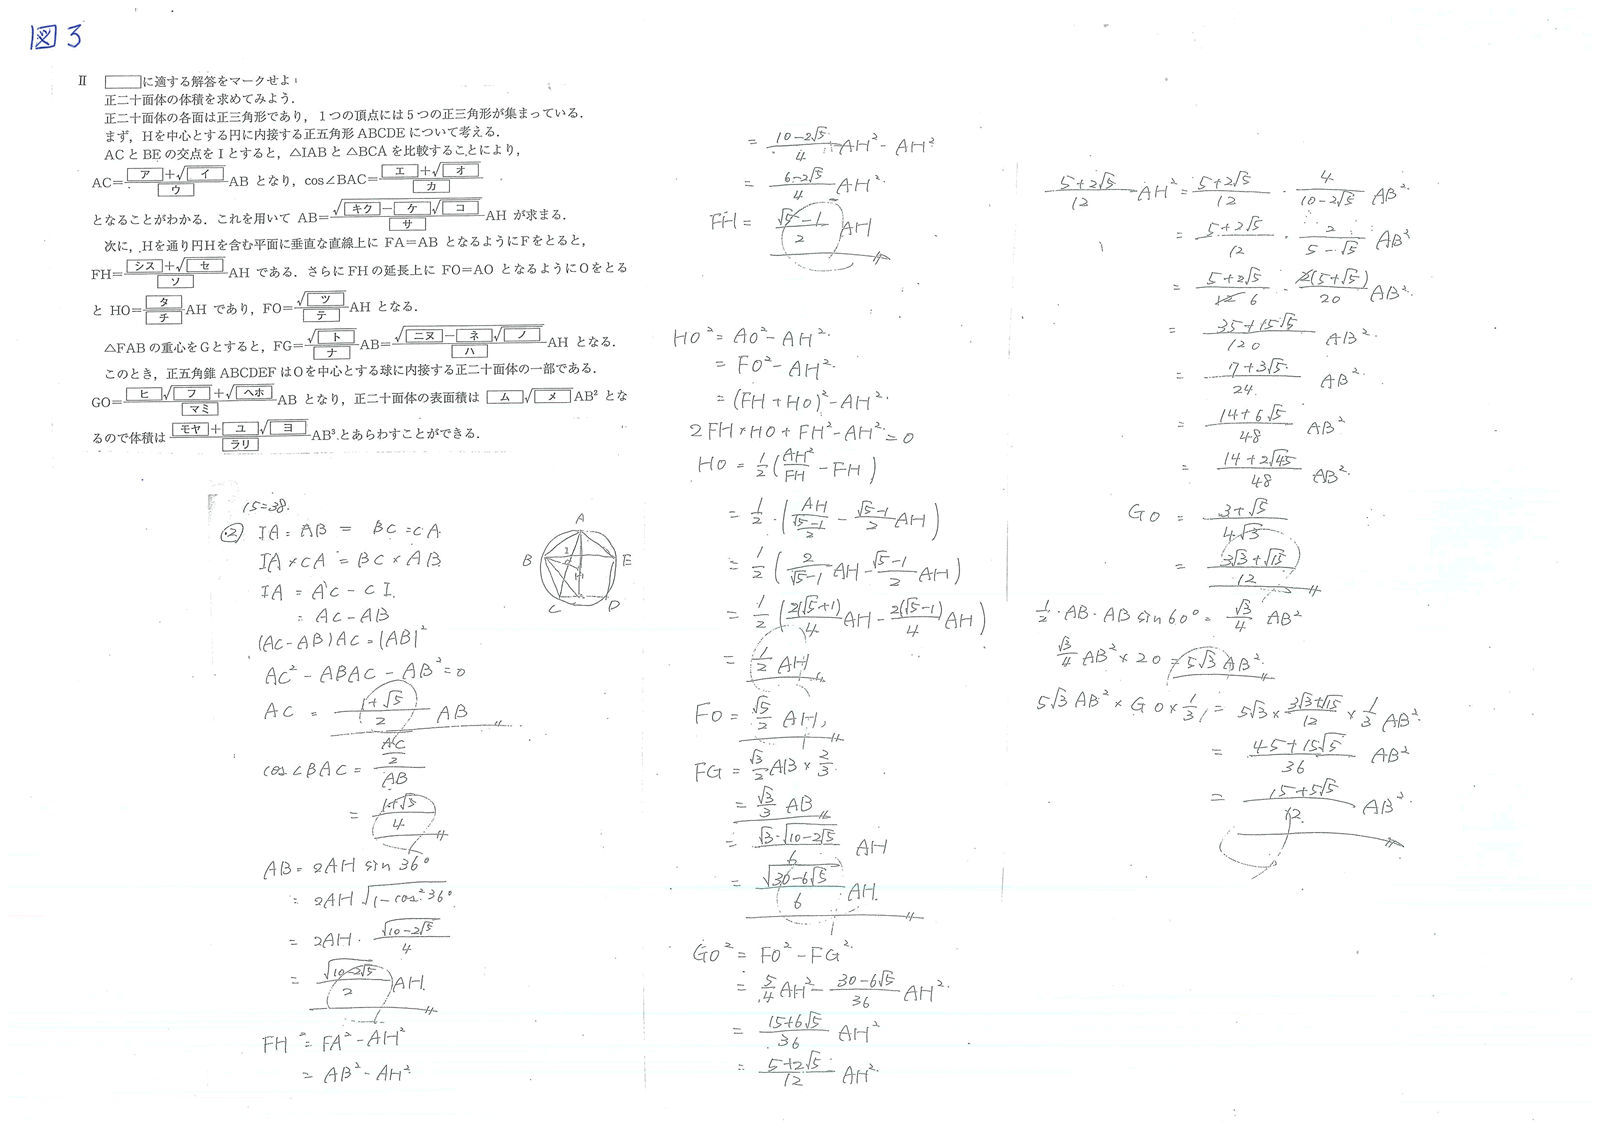 図3
II □に適する解答をマークせよ.
正二十面体の体積を求めてみよう.
正二十面体の各面は正三角形であり，1つの頂点には5つの正三角形が集まっている.
まず，Hを中心とする円に内接する正五角形ABCDEについて考える.
ACとBEの交点をIとすると，△IABと△BCAを比較することにより，
AC=(ア+√イ)/ウ AB となり，cos∠BAC=(エ+√オ)/カ
となることがわかる．これを用いて AB=√(キク−ケ√コ)/サ AH が求まる.
次に，Hを通り円Hを含む平面に垂直な直線上に FA=AB となるようにFをとると，
FH=(シス+√セ)/ソ AH である．さらにFHの延長上に FO=AO となるようにOをとる
と HO=タ/チ AH であり，FO=√ツ/テ AH となる.
△FABの重心をGとすると，FG=√ト/ナ AB=√(ニヌ−ネ√ノ)/ハ AH となる.
このとき，正五角錐ABCDEFはOを中心とする球に内接する正二十面体の一部である.
GO=(ヒ√フ+√ヘホ)/マミ AB となり，正二十面体の表面積は ム√メ AB² とな
るので体積は (モヤ+ユ√ヨ)/ラリ AB³とあらわすことができる.
15=38.
(2) IA:AB = BC:CA
IA×CA = BC×AB
IA = AC − CI.
= AC − AB
(AC−AB)AC=(AB)²
AC² − ABAC − AB² = 0
AC = (1+√5)/2 AB
cos∠BAC = (AC/2)/AB
= (1+√5)/4
AB = 2AH sin36°
= 2AH √(1−cos²36°)
= 2AH · √(10−2√5)/4
= √(10−2√5)/2 AH.
FH² = FA² − AH²
= AB² − AH²
A
B
I
E
H
C
D
= (10−2√5)/4 AH² − AH²
= (6−2√5)/4 AH²
FH = (√5−1)/2 AH
HO² = AO² − AH²
= FO² − AH²
= (FH+HO)² − AH²
2FH×HO + FH² − AH² = 0
HO = 1/2 (AH²/FH − FH)
= 1/2 · (AH/((√5−1)/2) − (√5−1)/2 AH)
= 1/2 (2/(√5−1) AH − (√5−1)/2 AH)
= 1/2 (2(√5+1)/4 AH − 2(√5−1)/4 AH)
= 1/2 AH
FO = √5/2 AH,
FG = √3/2 AB × 2/3
= √3/3 AB
= √3·√(10−2√5)/6 AH
= √(30−6√5)/6 AH.
GO² = FO² − FG²
= 5/4 AH² − (30−6√5)/36 AH²
= (15+6√5)/36 AH²
= (5+2√5)/12 AH²
(5+2√5)/12 AH² = (5+2√5)/12 · 4/(10−2√5) AB²
= (5+2√5)/12 · 2/(5−√5) AB²
= (5+2√5)/12 6 · 2(5+√5)/20 AB²
= (35+15√5)/120 AB²
= (7+3√5)/24 AB²
= (14+6√5)/48 AB²
= (14+2√45)/48 AB²
GO = (3+√5)/4√3
= (3√3+√15)/12
1/2 · AB · AB sin60° = √3/4 AB²
√3/4 AB² × 20 = 5√3 AB²
5√3 AB² × GO × 1/3, = 5√3 × (3√3+√15)/12 × 1/3 AB²
= (45+15√5)/36 AB²
= (15+5√5)/12 AB²